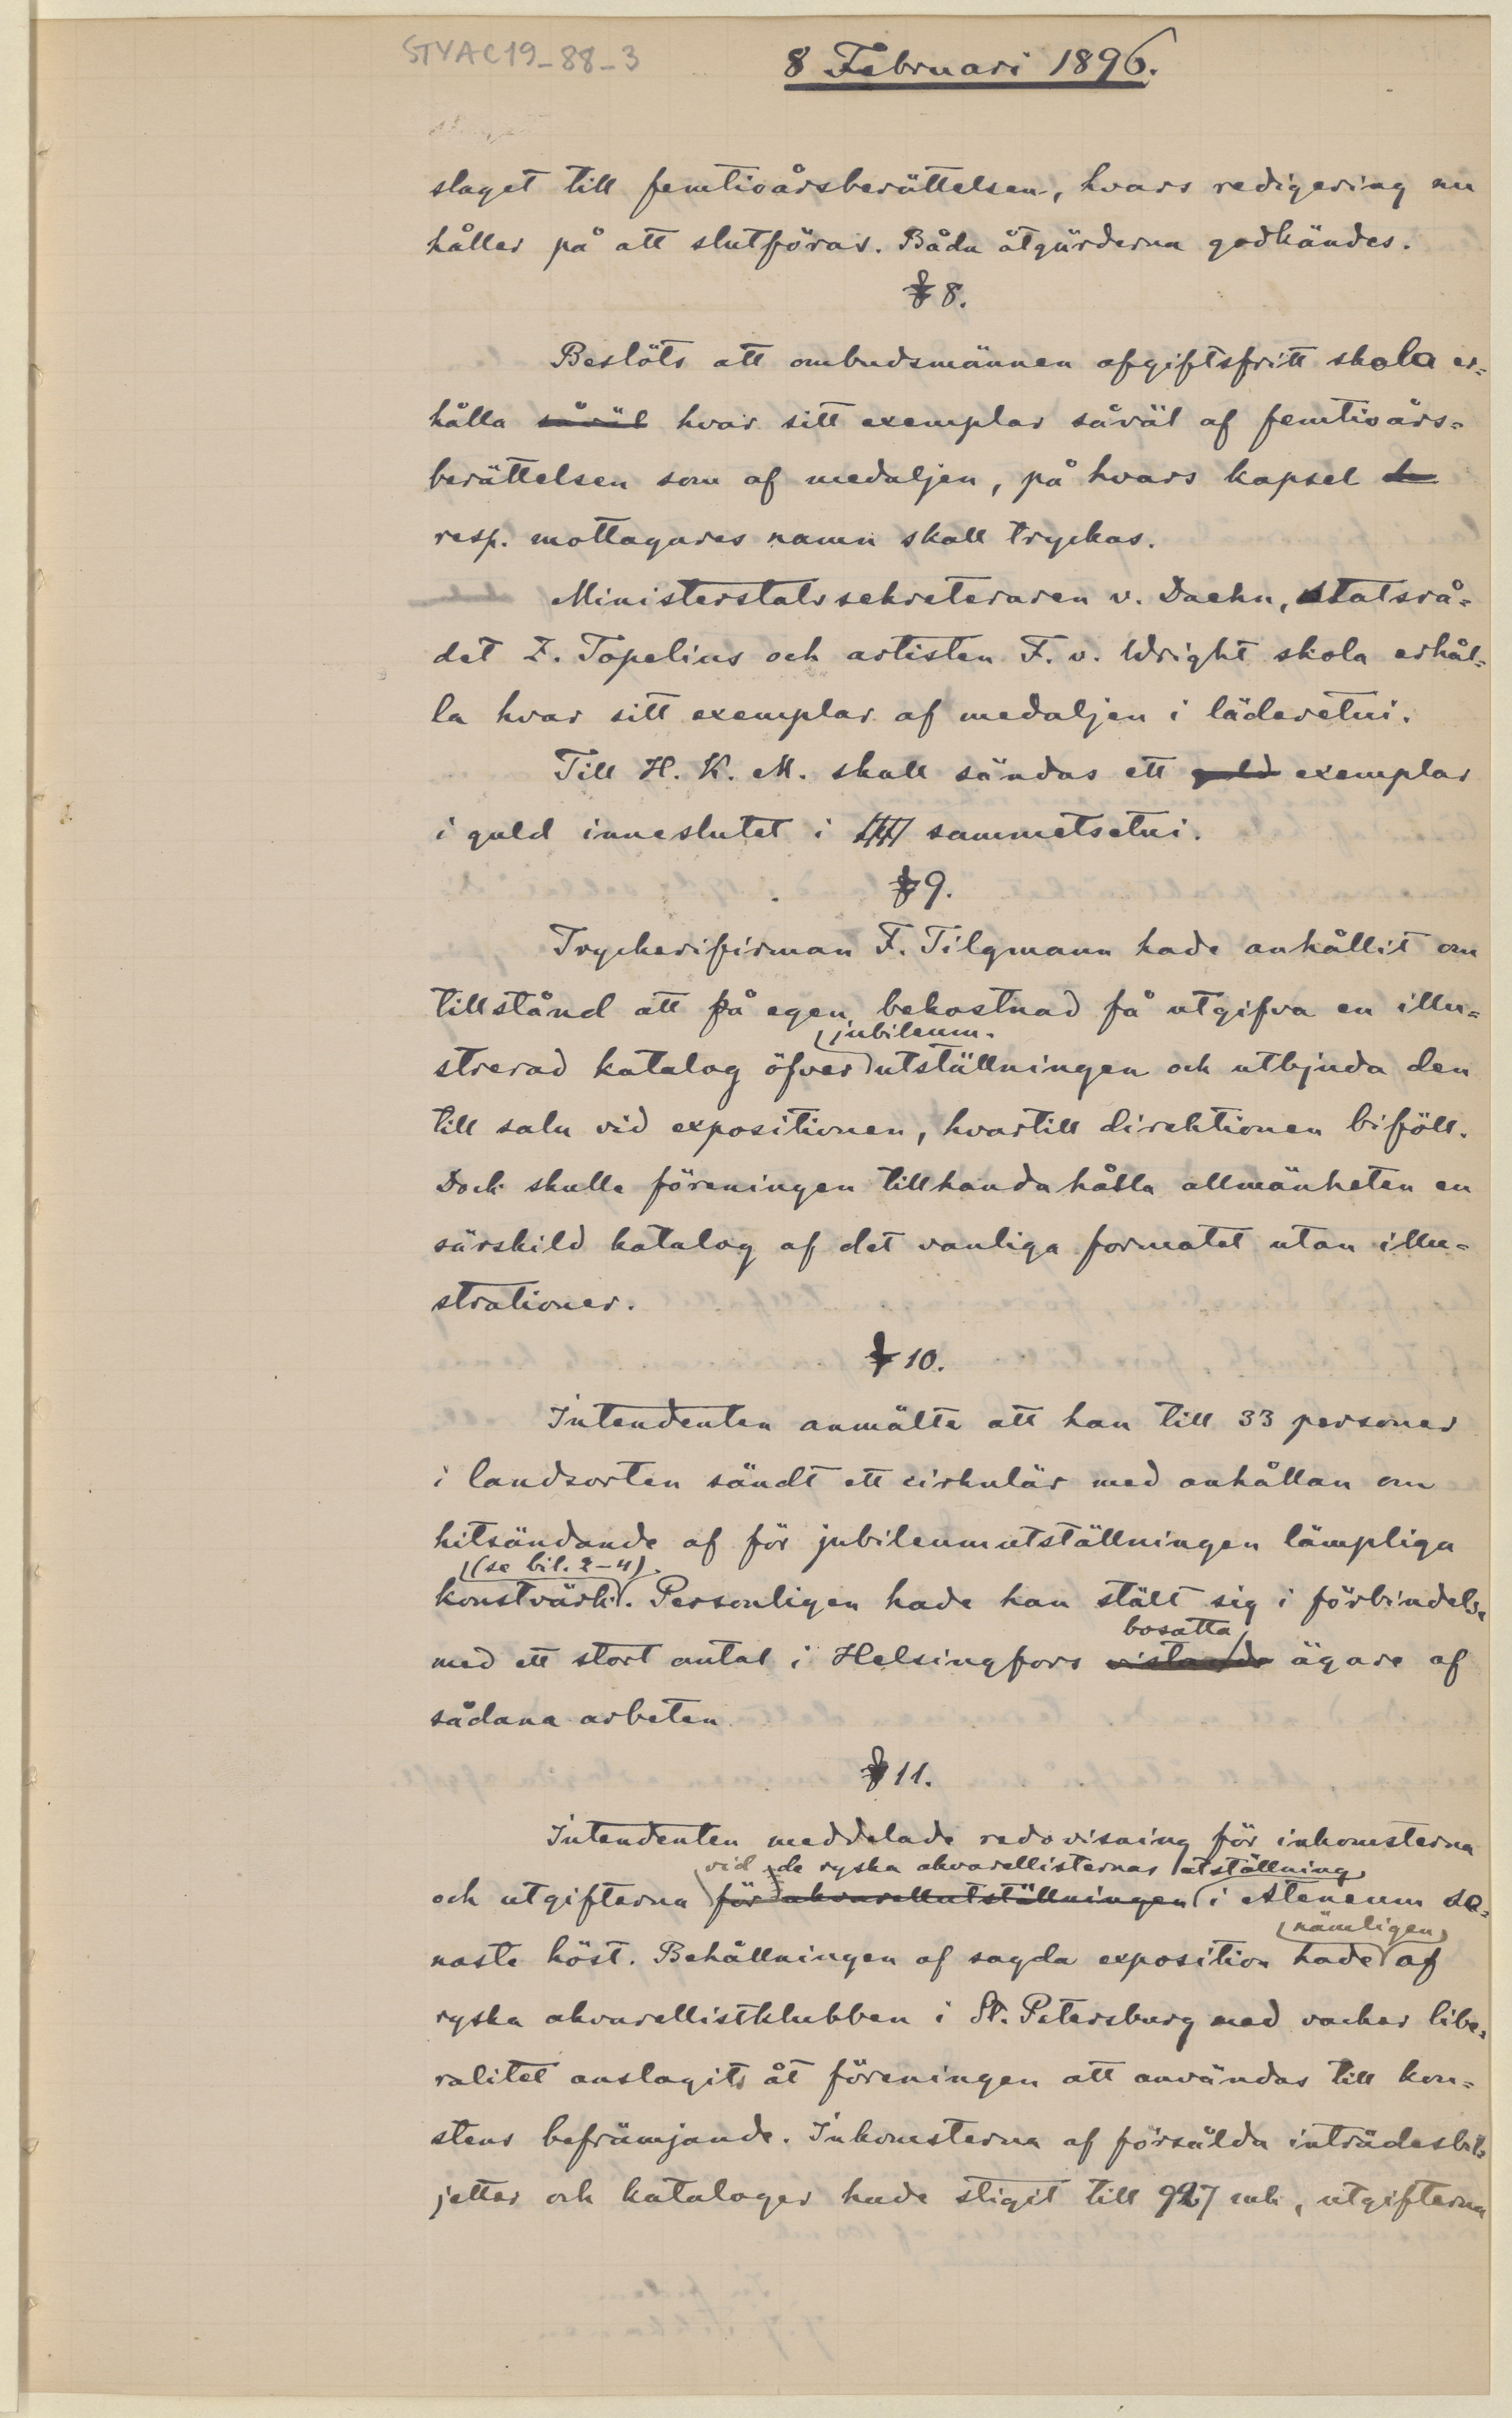 STYAC19_88_3
8 Februari 1896.
slaget till femtioårsberättelsen, hvars redigering nu
håller på att slutföras. Båda åtgärderna godkändes.
§ 8.
Beslöts att ombudsmännen afgiftsfritt skola er=
hålla såväl hvar sitt exemplar såväl af femtioårs=
berättelsen som af medaljen, på hvars kapsel
resp. mottagares namn skall tryckas.
Ministerstatssekreteraren v. Daehn, statsrå=
det Z. Topelius och artisten F. v. Wright skola erhål=
la hvar sitt exemplar af medaljen i läderetui.
Till H. K. M. skall sändas ett guld exemplar
i guld inneslutet i sammetsetui.
§ 9.
Tryckerifirman F. Tilgmann hade anhållit om
tillstånd att på egen bekostnad få utgifva en illu=
jubileum-
strerad katalog öfver utställningen och utbjuda den
till salu vid expositionen, hvartill direktionen biföll.
Dock skulle föreningen tillhandahålla allmänheten en
särskild katalog af det vanliga formatet utan illu=
strationer.
§ 10.
Intendenten anmälte att han till 33 personer
i landsorten sändt ett cirkulär med anhållan om
hitsändande af för jubileumutställningen lämpliga
(se bil. 2-4)
konstvärk. Personligen hade han stält sig i förbindelse
bosatta
med ett stort antal i Helsingfors vistande ägare af
sådana arbeten
§ 11.
Intendenten meddelade redovisning för inkomsterna
vid de ryska akvarellisternas utställning
och utgifterna för akvarellutställningen i Ateneum se=
nämligen
naste höst. Behållningen af sagda exposition hade af
ryska akvarellistklubben i St. Petersburg med vacker libe=
ralitet anslagits åt föreningen att användas till kon=
stens befrämjande. Inkomsterna af försålda inträdesbil
jetter och kataloger hade stigit till 927 mk, utgifterna